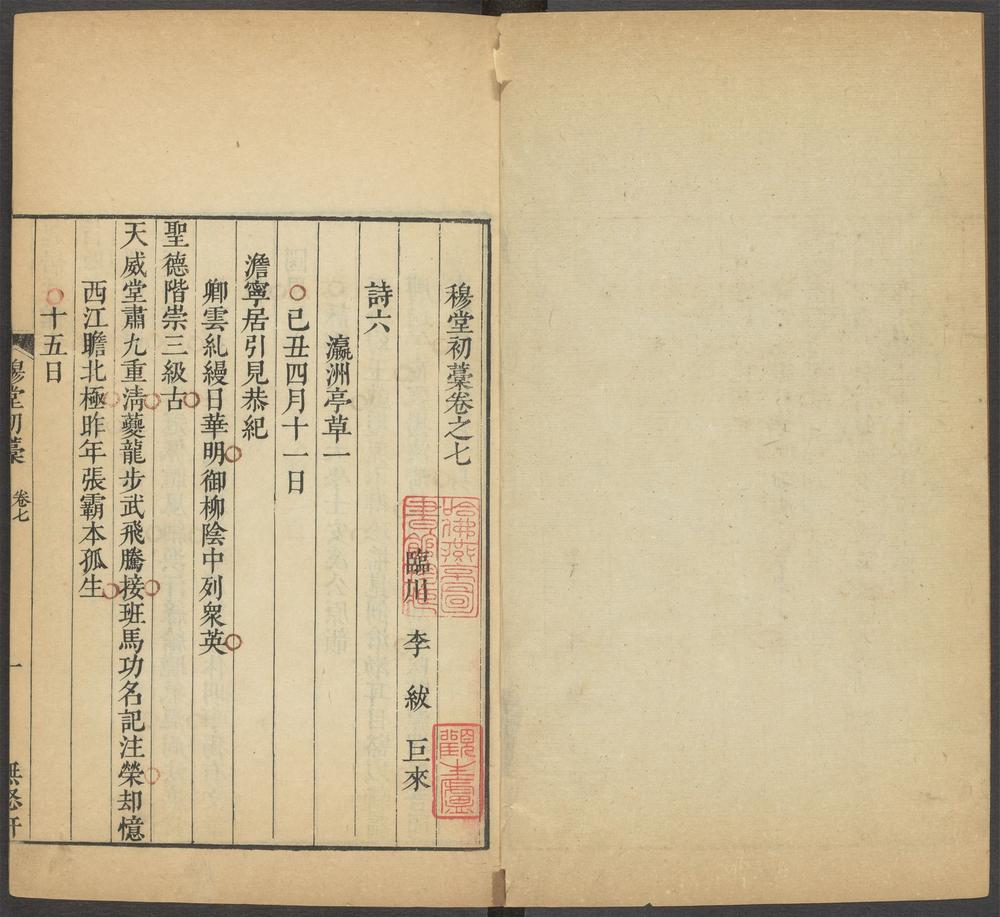 穆堂初藁卷之七
臨川 李紱 巨來
詩六
瀛洲亭草一
己丑四月十一日
澹寧居引見恭紀
卿雲糺縵日華明御柳陰中列衆英
聖德階崇三級古
天威堂肅九重淸夔龍步武飛騰接班馬功名記注榮却憶
西江瞻北極昨年張霸本孤生
十五日
穆堂初藁 卷七 一 無怒軒
哈佛燕京
觀生廬